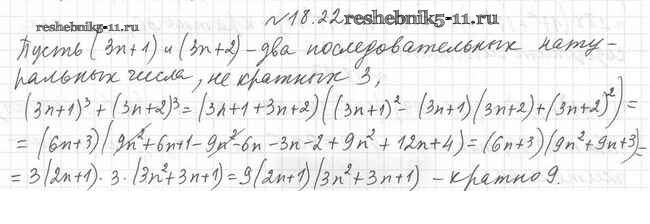 reshebnik5-11.ru №18.22 reshebnik5-11.ru
Пусть (3n+1) и (3n+2) – два последовательных нату-
ральных числа, не кратных 3,
(3n+1)³ + (3n+2)³ = (3n+1+3n+2)((3n+1)² – (3n+1)(3n+2) + (3n+2)²) =
= (6n+3)(9n²+6n+1–9n²–6n–3n–2+9n²+12n+4) = (6n+3)(9n²+9n+3) =
= 3(2n+1)·3·(3n²+3n+1) = 9(2n+1)(3n²+3n+1) – кратно 9.